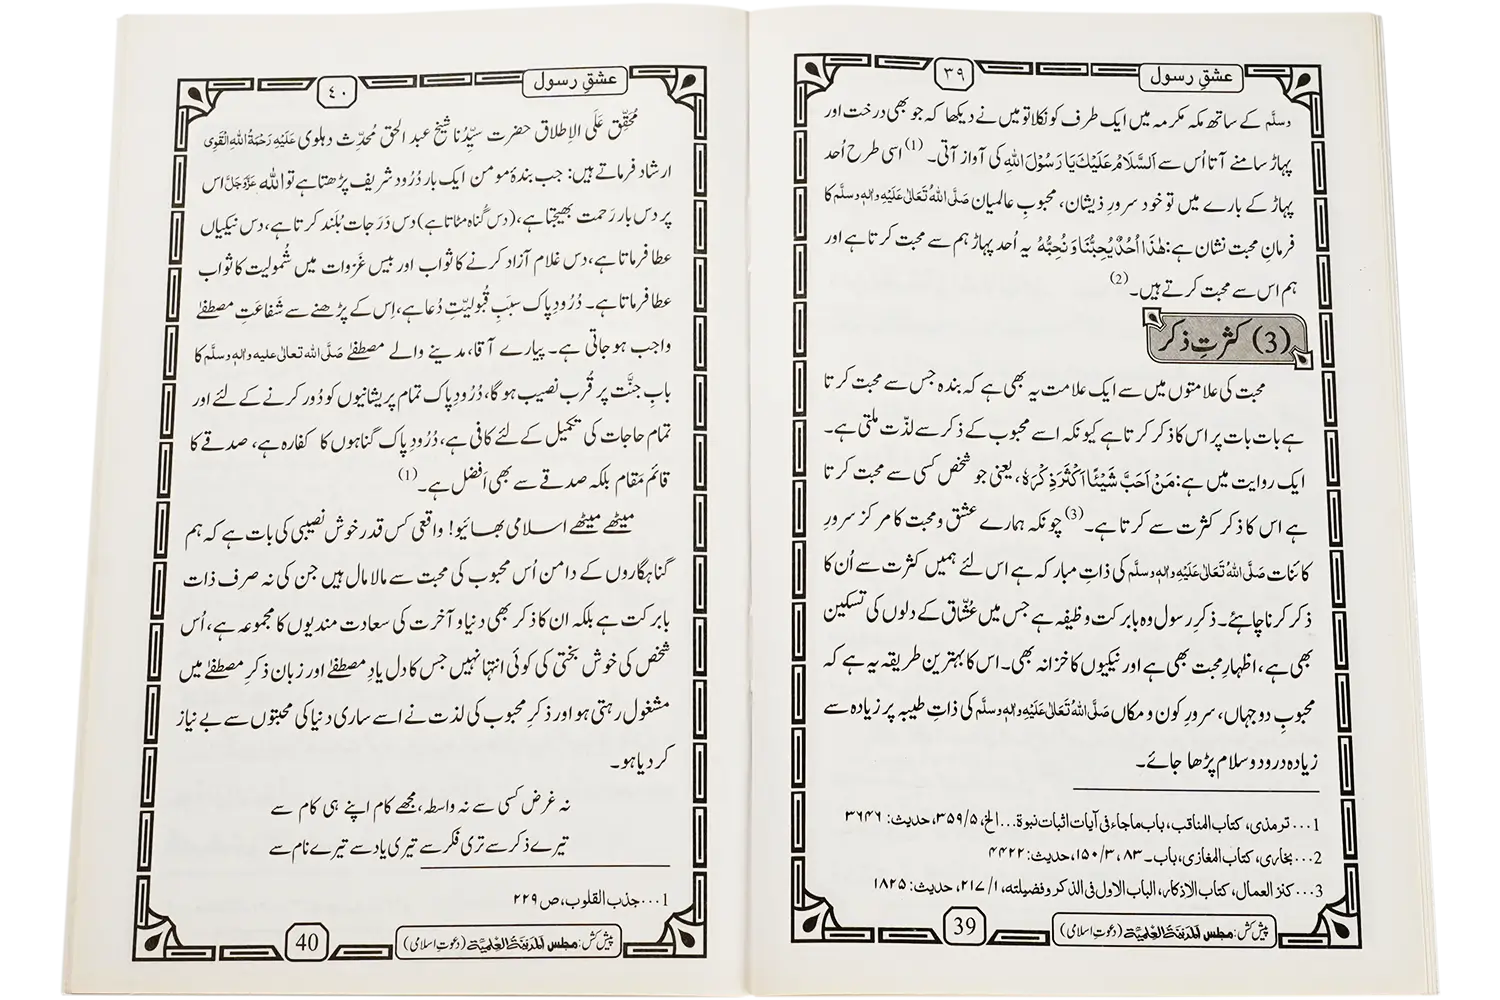 عشقِ رسول
۳۹
وسلَّم کے ساتھ مکہ مکرمہ میں ایک طرف کو نکلا تو میں نے دیکھا کہ جو بھی درخت اور
پہاڑ سامنے آتا اُس سے اَلسَّلَامُ عَلَیْكَ یَا رَسُوْلَ اللہِ کی آواز آتی۔ (1) اسی طرح اُحد
پہاڑ کے بارے میں تو خود سرورِ ذیشان، محبوبِ عالمیان صَلَّی اللہُ تَعَالٰی عَلَیْہِ واٰلہٖ وسلَّم کا
فرمانِ محبت نشان ہے: ھٰذَا اُحُدٌ یُحِبُّنَا وَ نُحِبُّہُ یہ اُحد پہاڑ ہم سے محبت کرتا ہے اور
ہم اس سے محبت کرتے ہیں۔ (2)
(3) کثرتِ ذکر
محبت کی علامتوں میں سے ایک علامت یہ بھی ہے کہ بندہ جس سے محبت کرتا
ہے بات بات پر اس کا ذکر کرتا ہے کیونکہ اسے محبوب کے ذکر سے لذّت ملتی ہے۔
ایک روایت میں ہے: مَنْ اَحَبَّ شَیْئًا اَکْثَرَ ذِکْرَہٗ، یعنی جو شخص کسی سے محبت کرتا
ہے اس کا ذکر کثرت سے کرتا ہے۔ (3) چونکہ ہمارے عشق و محبت کا مرکز سرورِ
کائنات صَلَّی اللہُ تَعَالٰی عَلَیْہِ واٰلہٖ وسلَّم کی ذاتِ مبارکہ ہے اس لئے ہمیں کثرت سے اُن کا
ذکر کرنا چاہئے۔ ذکرِ رسول وہ بابرکت وظیفہ ہے جس میں عشّاق کے دلوں کی تسکین
بھی ہے، اظہارِ محبت بھی ہے اور نیکیوں کا خزانہ بھی۔ اس کا بہترین طریقہ یہ ہے کہ
محبوبِ دو جہاں، سرورِ کون و مکاں صَلَّی اللہُ تَعَالٰی عَلَیْہِ واٰلہٖ وسلَّم کی ذاتِ طیبہ پر زیادہ سے
زیادہ درود و سلام پڑھا جائے۔
1...ترمذی، کتاب المناقب، باب ماجاء فی آیات اثبات نبوة...الخ، ۵/۳۵۹، حدیث: ۳۶۴۶
2...بخاری، کتاب المغازی، باب۔۸۳، ۳/۱۵۰، حدیث: ۴۴۲۲
3...کنز العمال، کتاب الاذکار، الباب الاول فی الذکر وفضیلتہ، ۱/۲۱۷، حدیث: ۱۸۲۵
پیش کش: مجلس اَلْمَدِیْنَۃُ الْعِلْمِیَّۃ (دعوتِ اسلامی)
39
عشقِ رسول
٤٠
مُحَقِّق عَلَی الاِطلاق حضرت سیِّدُنا شیخ عبد الحق مُحدِّث دہلوی عَلَیْہِ رَحْمَۃُ اللہِ الْقَوِی
ارشاد فرماتے ہیں: جب بندۂ مومن ایک بار دُرُود شریف پڑھتا ہے تو اللہ عَزَّوَجَلَّ اس
پر دس بار رَحمت بھیجتا ہے، (دس گُناہ مٹاتا ہے) دس دَرَجات بُلَند کرتا ہے، دس نیکیاں
عطا فرماتا ہے، دس غلام آزاد کرنے کا ثواب اور بیس غَزوات میں شُمولیت کا ثواب
عطا فرماتا ہے۔ دُرُودِ پاک سببِ قُبولیّتِ دُعا ہے، اِس کے پڑھنے سے شَفاعَتِ مصطفےٰ
واجب ہو جاتی ہے۔ پیارے آقا، مدینے والے مصطفےٰ صَلَّی اللہ تعالٰی علیہ واٰلہٖ وسلَّم کا
بابِ جنَّت پر قُرب نصیب ہو گا، دُرُودِ پاک تمام پریشانیوں کو دُور کرنے کے لئے اور
تمام حاجات کی تکمیل کے لئے کافی ہے، دُرُودِ پاک گناہوں کا کفارہ ہے، صدقے کا
قائم مَقام بلکہ صدقے سے بھی اَفضل ہے۔ (1)
میٹھے میٹھے اسلامی بھائیو! واقعی کس قدر خوش نصیبی کی بات ہے کہ ہم
گناہگاروں کے دامن اُس محبوب کی محبت سے مالا مال ہیں جن کی نہ صرف ذات
بابرکت ہے بلکہ ان کا ذکر بھی دنیا و آخرت کی سعادت مندیوں کا مجموعہ ہے، اُس
شخص کی خوش بختی کی کوئی انتہا نہیں جس کا دل یادِ مصطفےٰ اور زبان ذکرِ مصطفےٰ میں
مشغول رہتی ہو اور ذکرِ محبوب کی لذت نے اسے ساری دنیا کی محبتوں سے بے نیاز
کر دیا ہو۔
نہ غرض کسی سے نہ واسطہ، مجھے کام اپنے ہی کام سے
تیرے ذکر سے تری فکر سے تیری یاد سے تیرے نام سے
1...جذب القلوب، ص ۲۲۹
پیش کش: مجلس اَلْمَدِیْنَۃُ الْعِلْمِیَّۃ (دعوتِ اسلامی)
40